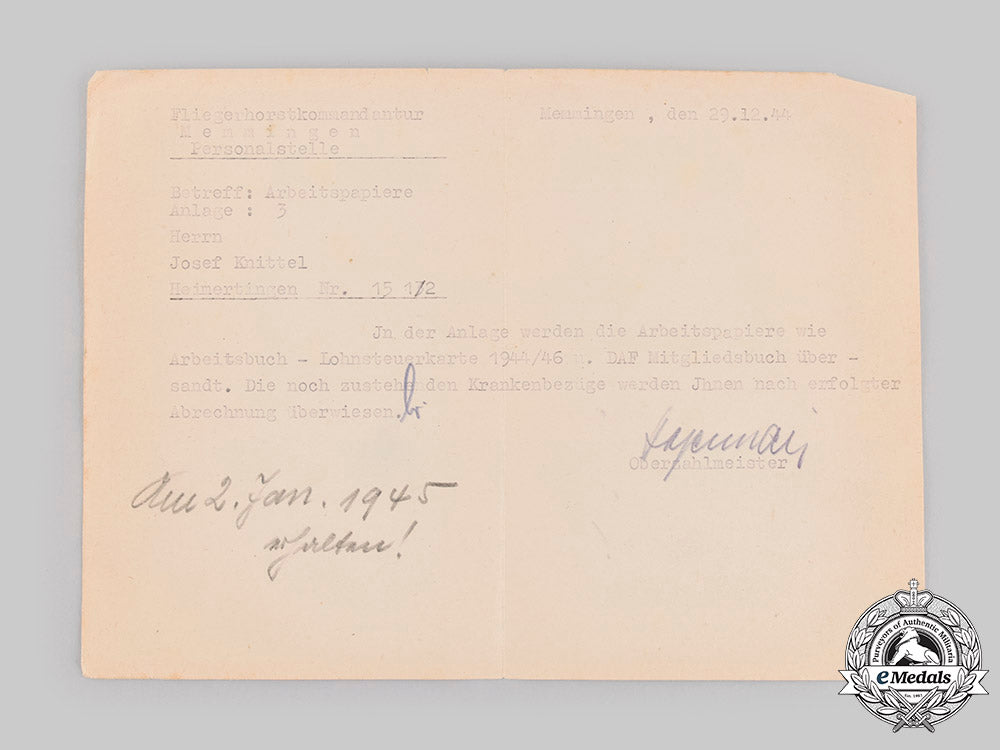 Fliegerhorstkommandantur
Memmingen, den 29.12.44
M e m m i n g e n
Personalstelle
Betreff: Arbeitspapiere
Anlage : 3
Herrn
Josef Knittel
Heimertingen Nr. 15 1/2
Jn der Anlage werden die Arbeitspapiere wie
Arbeitsbuch - Lohnsteuerkarte 1944/46 u. DAF Mitgliedsbuch über -
sandt. Die noch zusteh den Krankenbezüge werden Jhnen nach erfolgter
Abrechnung überwiesen.
Oberzahlmeister
Am 2. Jan. 1945
erhalten!
Purveyors of Authentic Militaria
eMedals